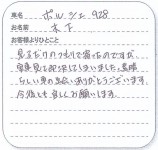 車名 ポルシェ 928
お名前 木下
お客様よりひとこと
見るだけのつもりで寄ったのですが、
実車見て即決してしまいました。素晴
らしい車の出会いありがとうございます。
今後とも宜しくお願いします。